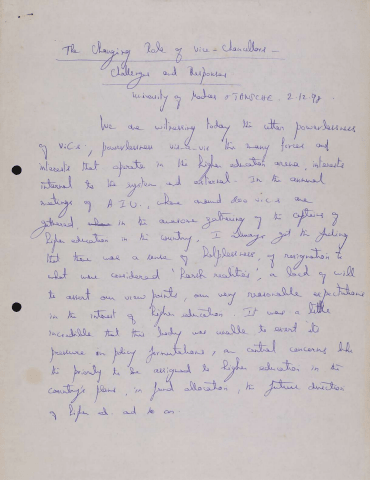 The Changing Role of Vice-Chancellors -
Challenges and Responses
University of Madras & TANSCHE. 2.12.98
We are witnessing today the utter powerlessness
of V.C.s, powerlessness vis-a-vis the many forces and
interests that operate in the higher education arena, interests
internal to the system and external. In the annual
meetings of A.I.U., where around 200 V.C.s are
gathered, in the awesome gathering of the captains of
higher education in the country, I always got the feeling
that there was a sense of helplessness, of resignation to
what were considered 'harsh realities', a lack of will
to assert our view points, our very reasonable expectations
in the interest of higher education. It was a little
incredible that this body was unable to exert its
pressure on policy formulations, on central concerns like
the priority to be assigned to higher education in the
country's plans, in fund allocation, the future direction
of higher ed. and so on.